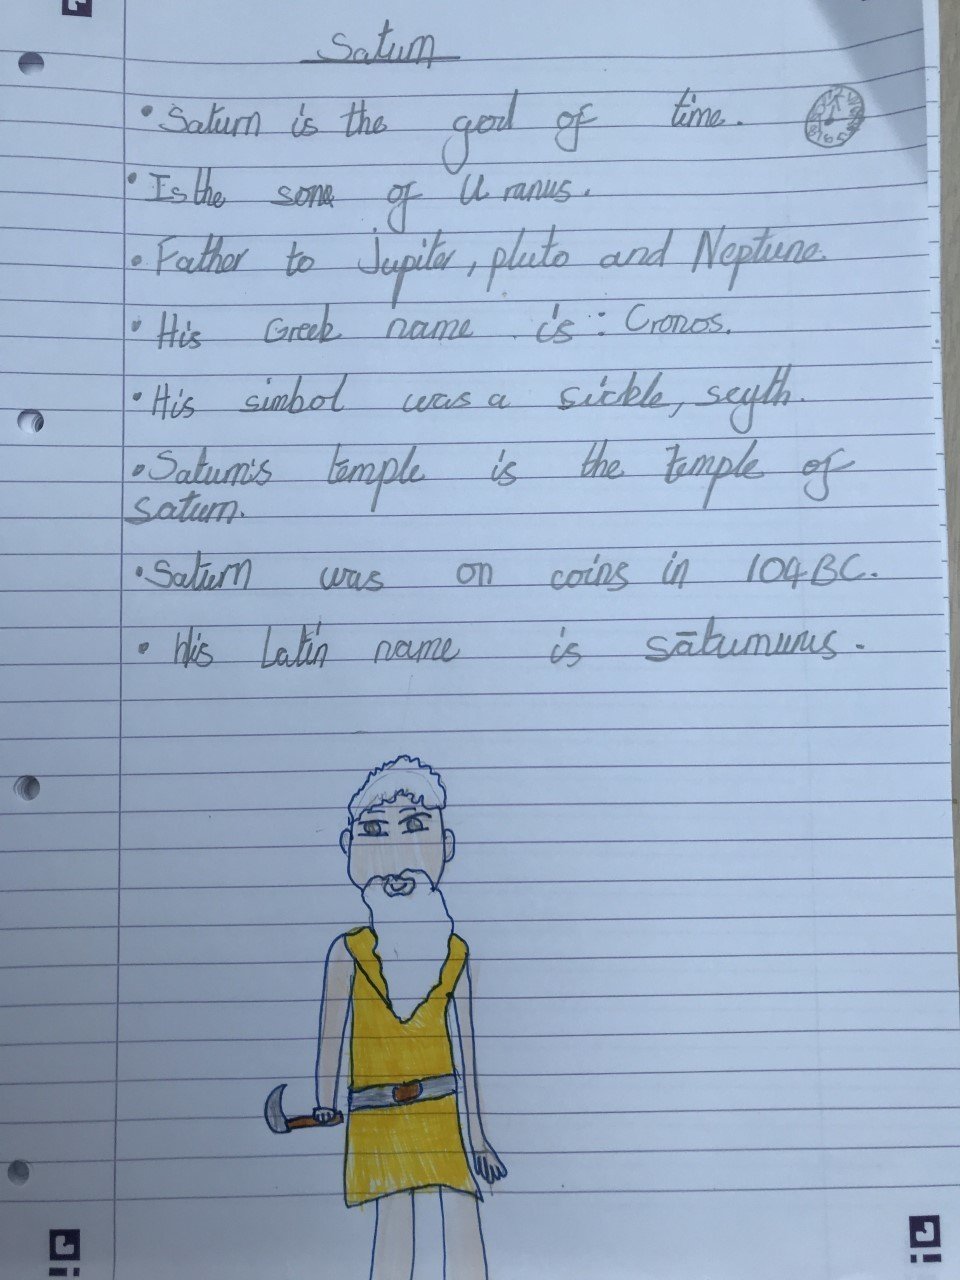 Saturn
• Saturn is the god of time.
• Is the sone of Uranus.
• Father to Jupiter, pluto and Neptune.
• His Greek name is: Cronos.
• His simbol was a sickle, scyth.
• Saturn's temple is the temple of
saturn.
• Saturn was on coins in 104BC.
• His Latin name is sāturnuus.